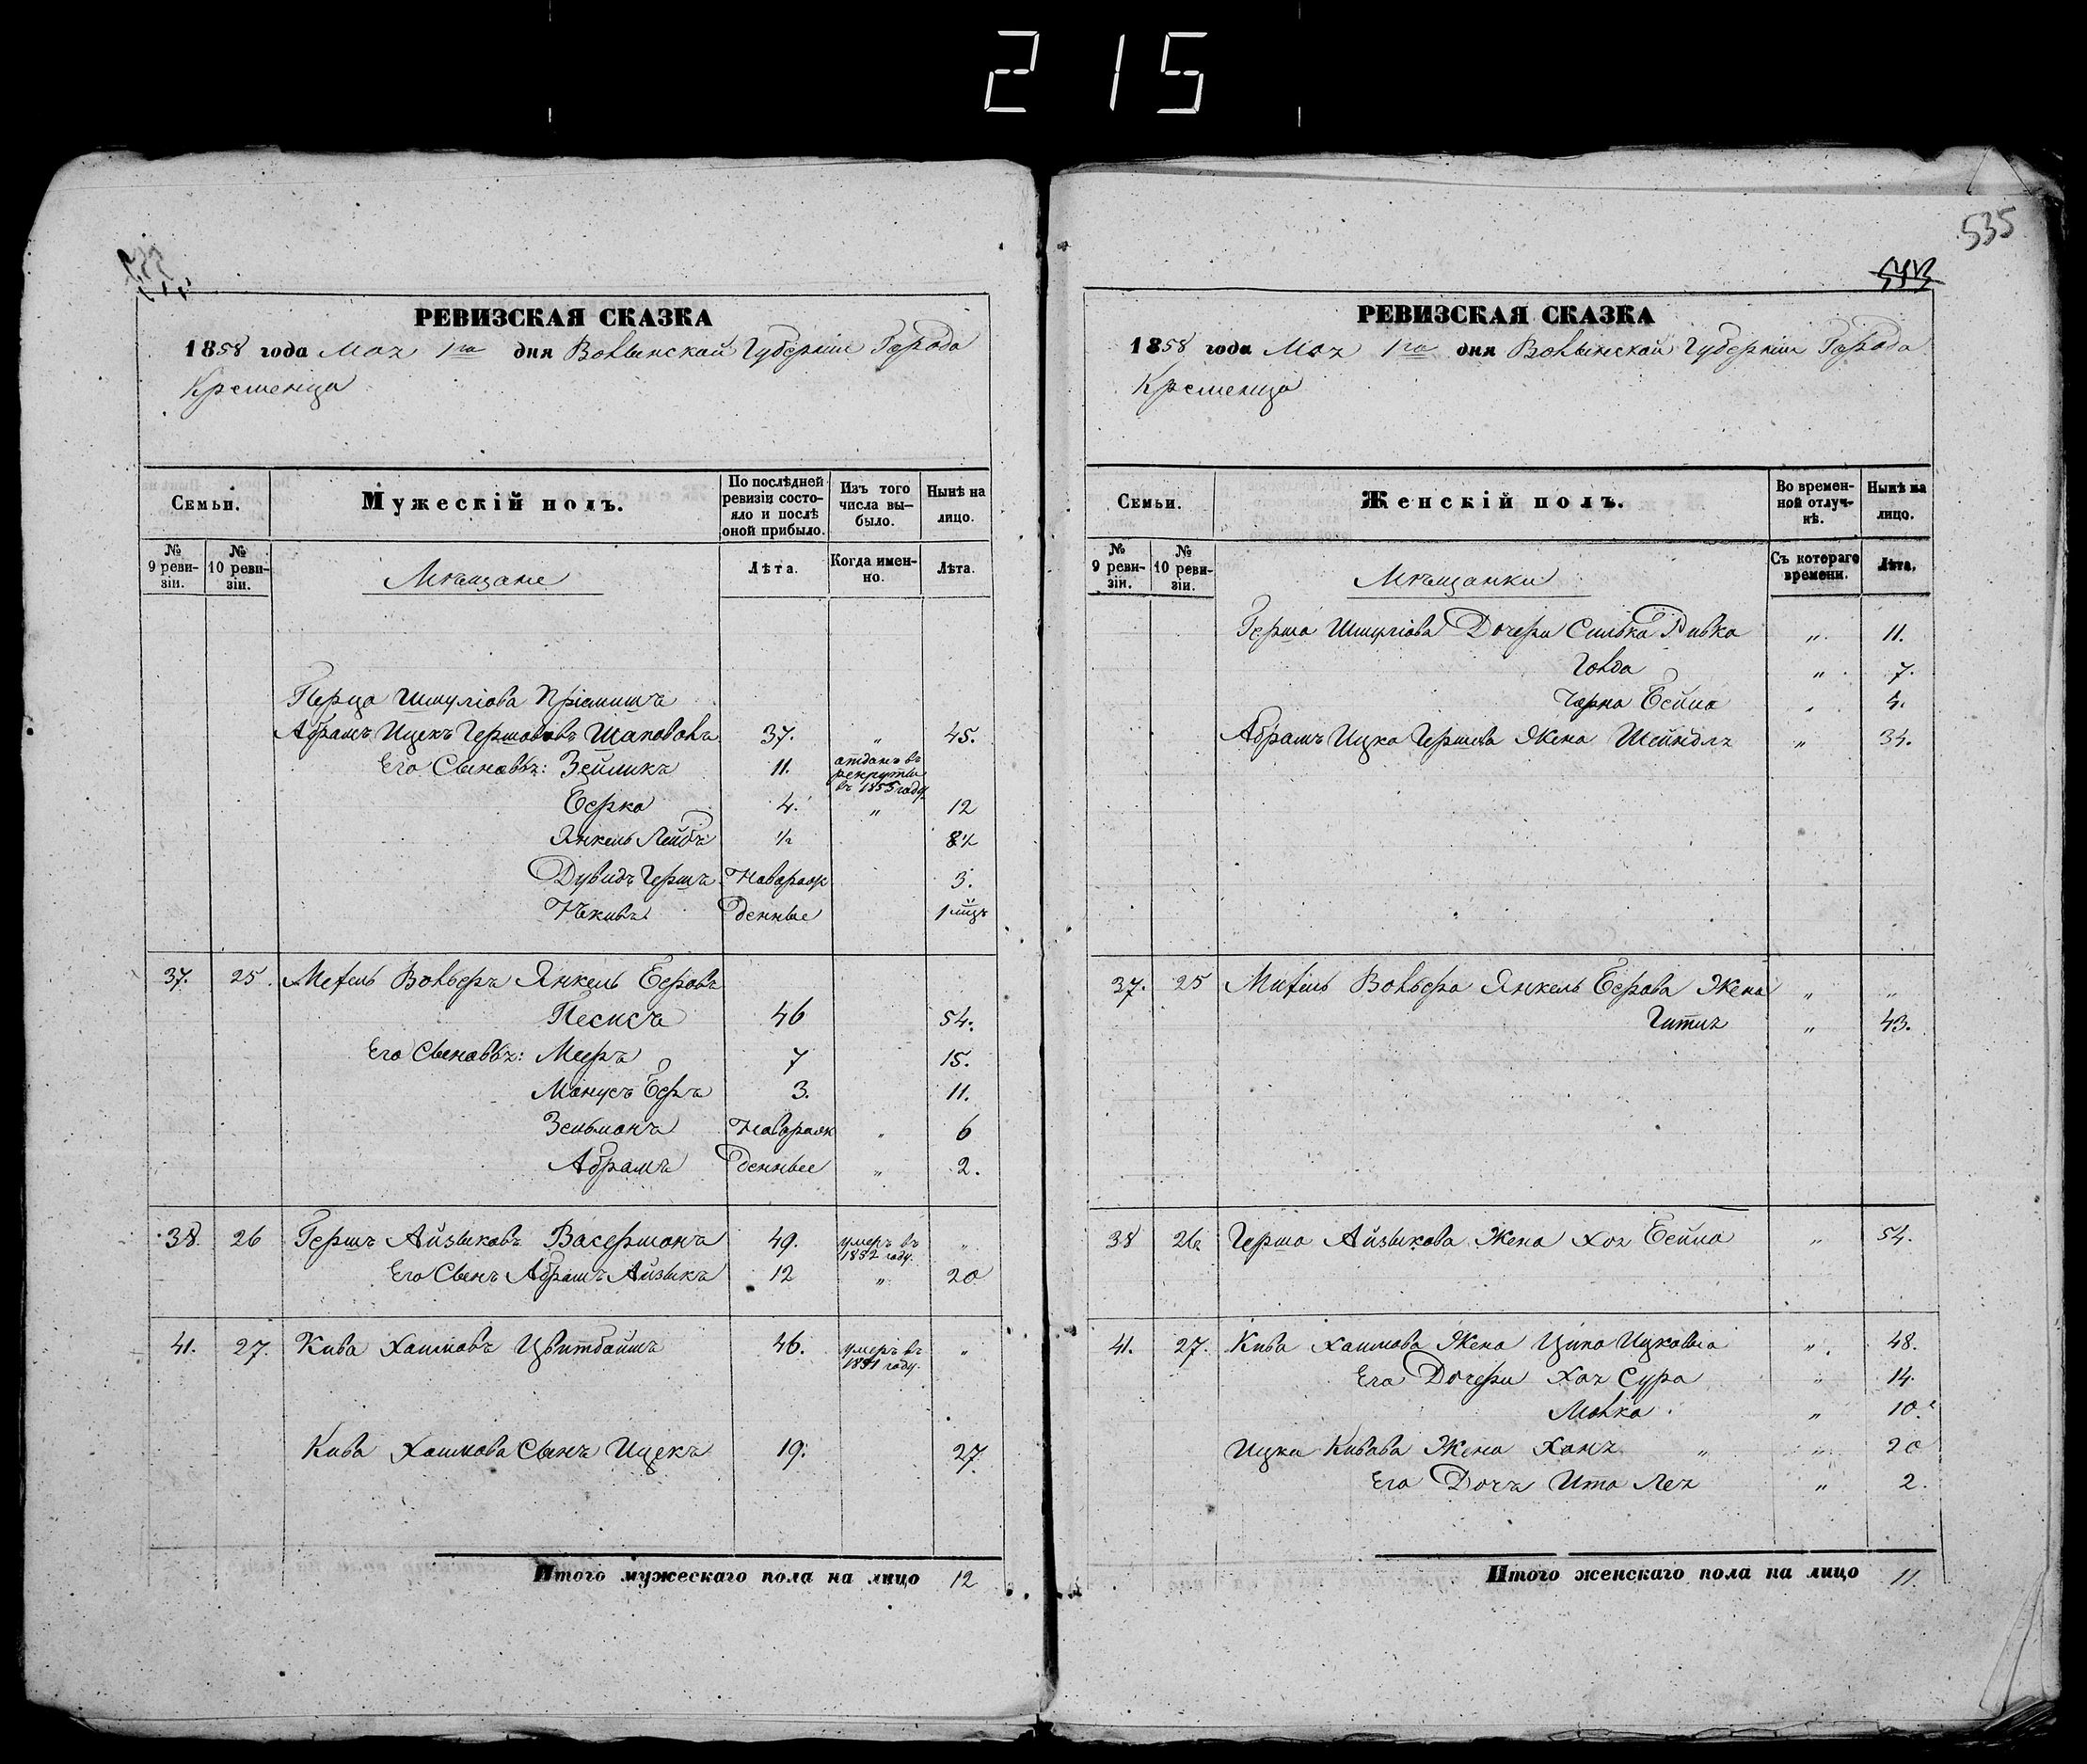 215
РЕВИЗСКАЯ СКАЗКА
1858 года Мая 1го дня Волынской Губерніи Города
Кременца
Семьи.
Мужескій полъ.
По послѣдней ревизіи состояло и послѣ оной прибыло.
Изъ того числа выбыло.
Нынѣ на лицо.
№ 9 ревизіи.
№ 10 ревизіи.
Мѣщане
Лѣта.
Когда именно.
Лѣта.
Перца Шмуліова Пріемишъ
Абрамъ Ицекъ Гершововъ Шаповолъ 37. " 45.
Его Сыновья: Зейликъ 11. отданъ въ рекруты въ 1855 году
Берко 4. " 12
Янкель Лейбъ ½ 8½
Дувидъ Гершъ Новорож 3.
Якивъ денные 1 мц
37. 25. Вольберъ Янкель Беровъ
46 54.
Его Сыновья: Мееръ 7 15.
Манусъ Беръ 3. 11.
Зельманъ Новорож " 6
Абрамъ денные " 2.
38. 26 Гершъ Айзыковъ Васерманъ 49. умеръ въ 1852 году. "
Его Сынъ Абрамъ Айзыкъ 12 " 20
41. 27. Кива Хаимовъ Цвитбаумъ 46. умеръ въ 1851 году. "
Кива Хаимова Сынъ Ицекъ 19. 27.
Итого мужескаго пола на лицо 12
535
543
РЕВИЗСКАЯ СКАЗКА
1858 года Мая 1го дня Волынской Губерніи Города
Кременца
Семьи.
Женскій полъ.
Во временной отлучкѣ.
Нынѣ на лицо.
№ 9 ревизіи.
№ 10 ревизіи.
Мѣщанки
Съ котораго времени.
Лѣта.
Герша Шмуліова Дочери Симка Ривка " 11.
Голда " 7.
Черна Бейла " 4.
Абрамъ Ицка Гершова Жена Шейндля " 34.
37. 25 Вольбера Янкель Берова Жена " "
Гитля " 43.
38 26 Герша Айзыкова Жена Хая Бейла " 54.
41. 27. Кива Хаимова Жена Ципа Ицковна " 48.
Его Дочери Хая Сура " 14.
Малка " 10.
Ицка Кивова Жена Хана " " 20
Его Дочь Ита Лея " 2.
Итого женскаго пола на лицо 11.